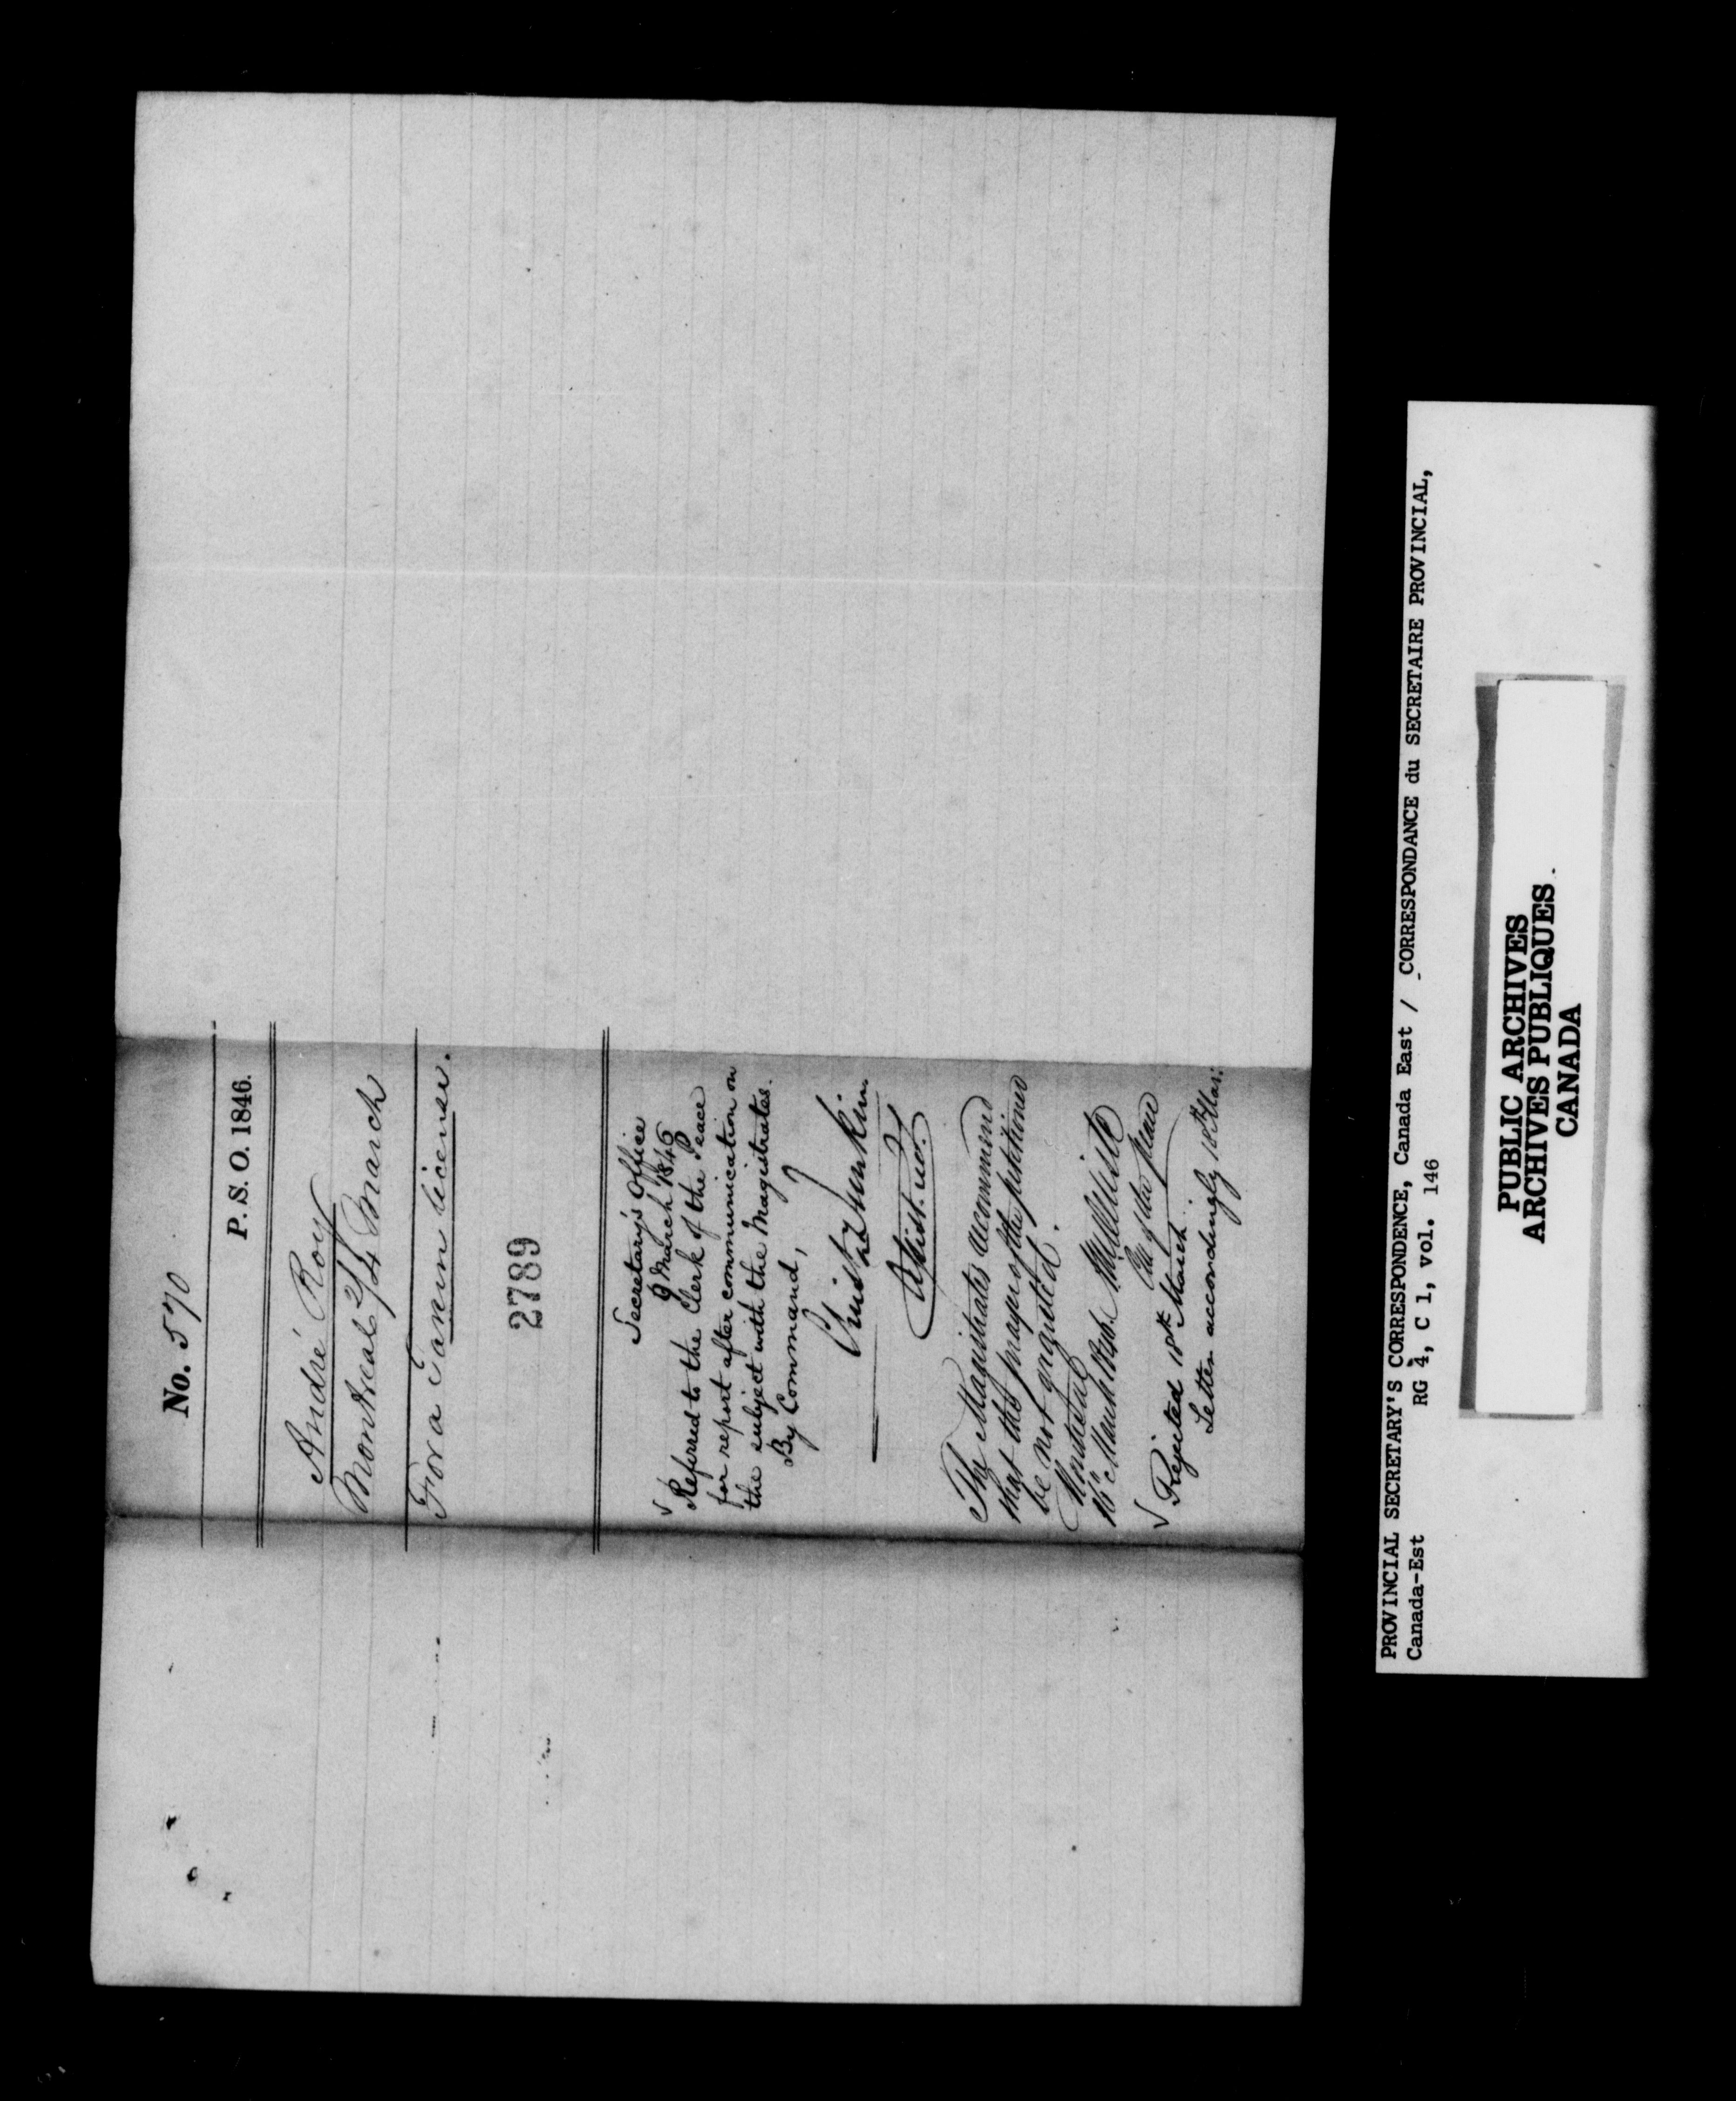 No. 570
P. S. O. 1846.
André Roy
Montreal 2/4 March
For a Tavern license.
2789
Secretary's Office
9 March 1846
√ Referred to the Clerk of the Peace
for report after communication on
the subject with the Magistrates.
By Command,
Christ Dunkin
Assist. Secy.
The Magistrates recommend
that the prayer of the petitioner
be not granted.
Montreal
16th March 1846
Clk of the peace
√ Rejected 18th March
Letter accordingly 18th Mar:
PROVINCIAL SECRETARY'S CORRESPONDENCE, Canada East / CORRESPONDANCE du SECRETAIRE PROVINCIAL,
Canada-Est RG 4, C 1, vol. 146
PUBLIC ARCHIVES
ARCHIVES PUBLIQUES
CANADA